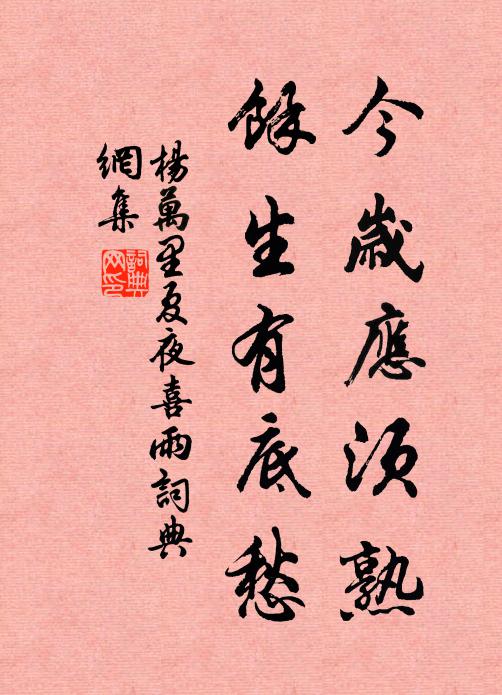 今歲應須熟
餘生有底愁
楊萬里夏夜喜雨詞典
網集
詞典
网印